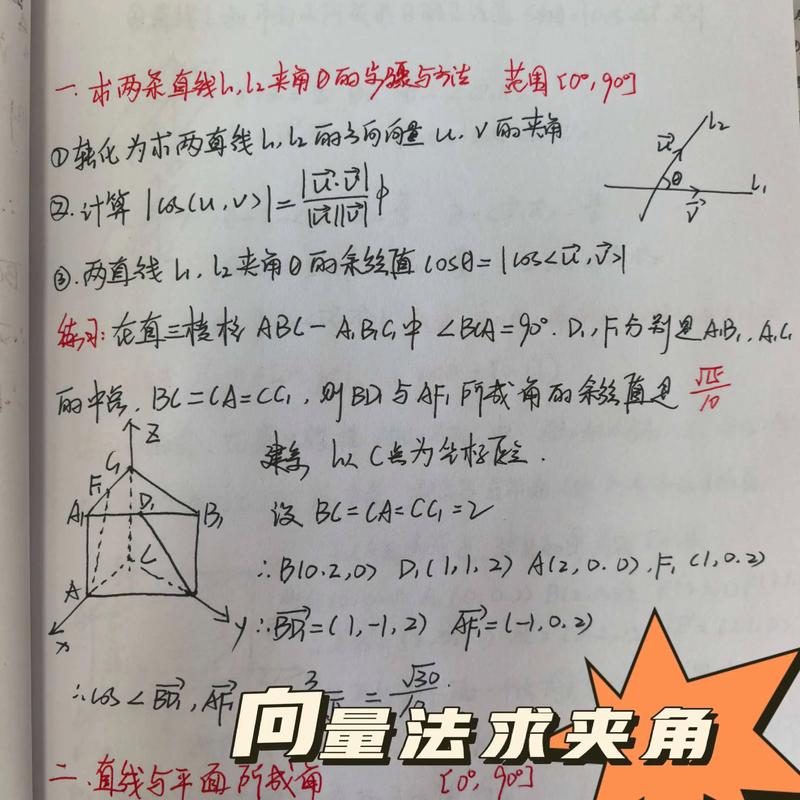 一. 求两条直线l₁,l₂夹角θ的步骤与方法 范围[0°,90°]
①转化为求两直线l₁,l₂的方向向量u,v的夹角
②.计算|cos(u,v)|=|u⃗·v⃗|/|u⃗||v⃗|
③.两直线l₁,l₂夹角θ的余弦值cosθ=|cos<u⃗,v⃗>|
u⃗ l₂ θ l₁ v⃗
练习:在直三棱柱ABC-A₁B₁C₁中∠BCA=90°.D₁,F₁分别是A₁B₁,A₁C₁
的中点,BC=CA=CC₁,则BD₁与AF₁所成角的余弦值是
建系 以C点为坐标原点.
设BC=CA=CC₁=2
∴B(0.2,0) D₁(1,1,2) A(2,0.0),F₁(1,0.2)
∴BD₁⃗=(1,-1,2) AF₁⃗=(-1,0.2)
z C₁ F₁ A₁ D₁ B₁ C A x y
∴cos<BD₁⃗,AF₁⃗ 3 =√30/10
向量法求夹角
二.直线与平面所成角 [0°,90°]